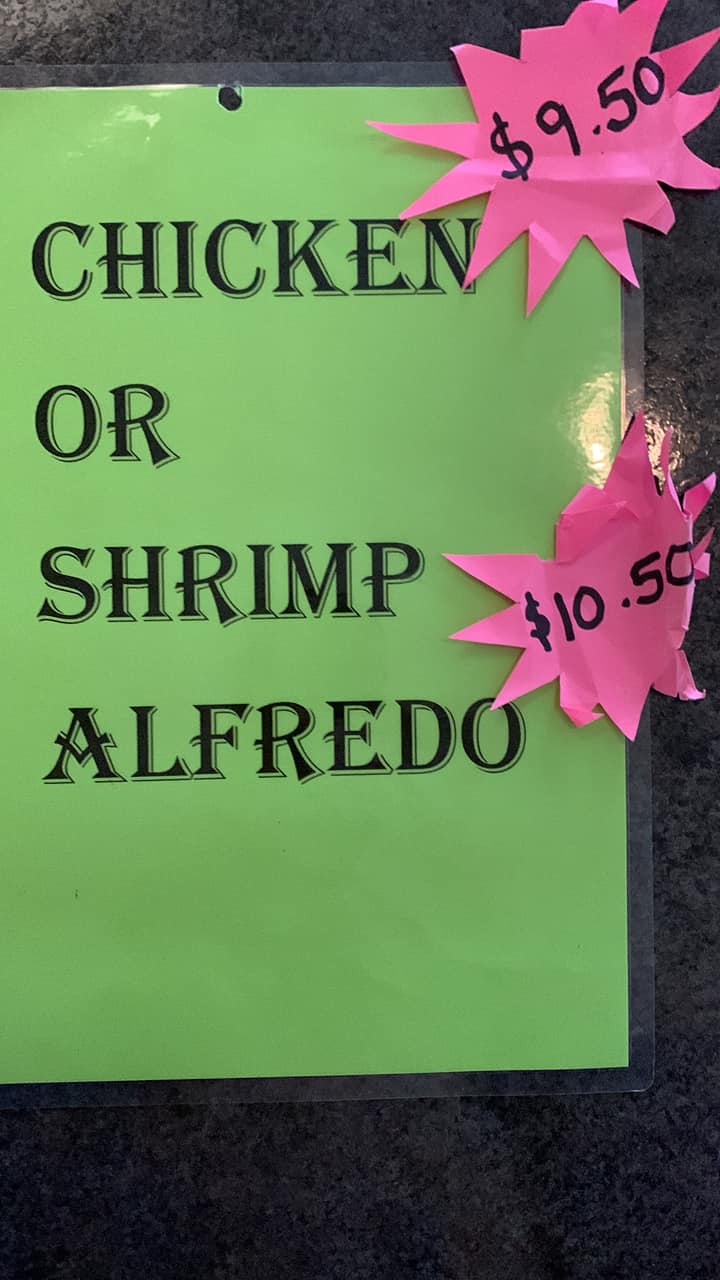 $9.50
CHICKEN
OR
SHRIMP
$10.50
ALFREDO